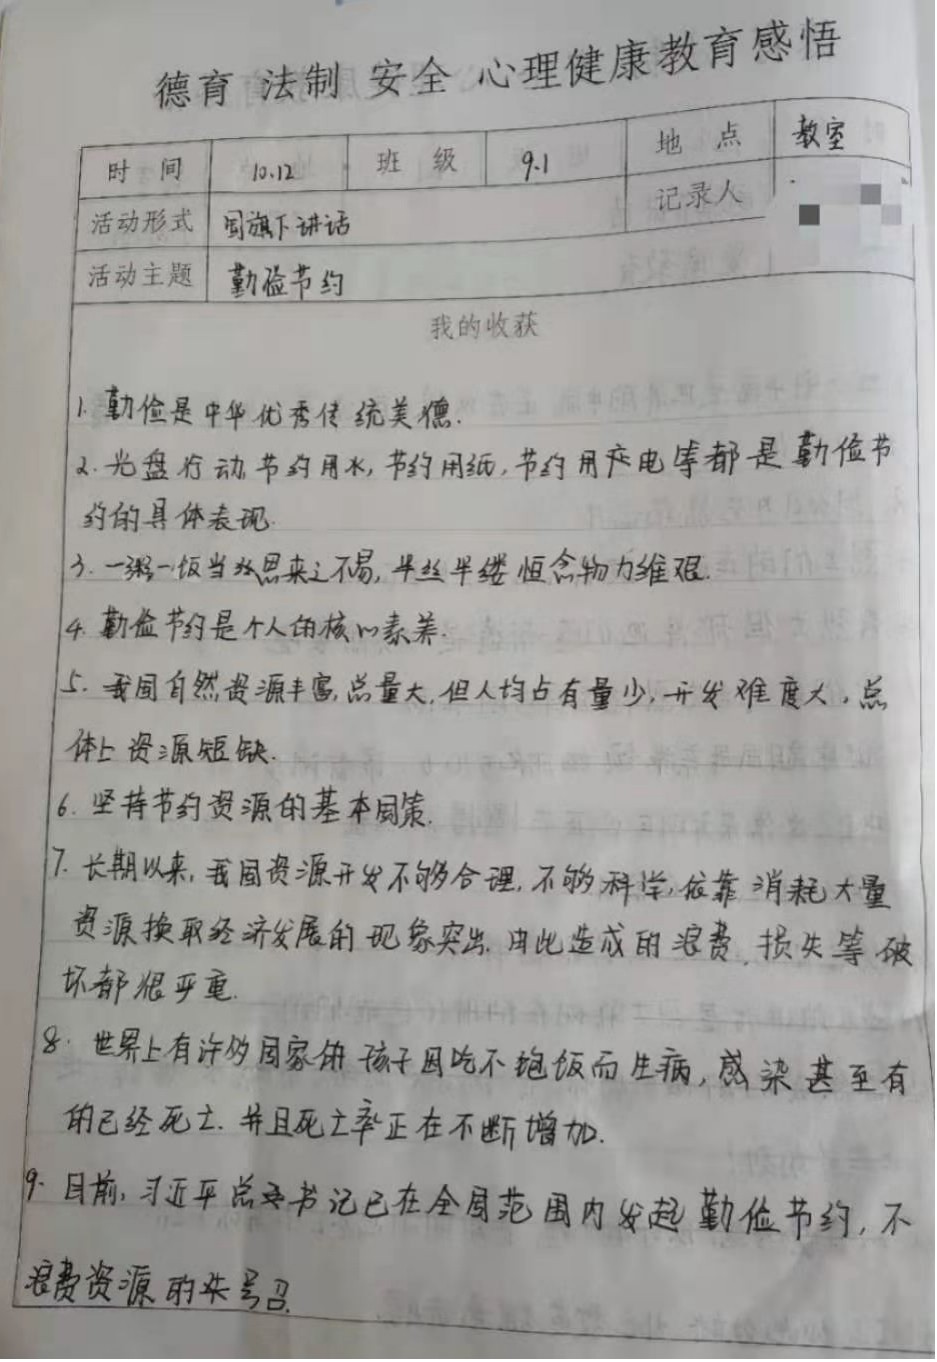 德育 法制 安全 心理健康教育感悟
时 间 10.12 班 级 9.1 地 点 教室
活动形式 国旗下讲话 记录人
活动主题 勤俭节约
我的收获
1. 勤俭是中华优秀传统美德.
2. 光盘行动,节约用水,节约用纸,节约用电等都是勤俭节
约的具体表现.
3. 一粥一饭当思来之不易,半丝半缕恒念物力维艰.
4. 勤俭节约是个人的核心素养.
5. 我国自然资源丰富,总量大,但人均占有量少,开发难度大,总
体上资源短缺.
6. 坚持节约资源的基本国策.
7. 长期以来,我国资源开发不够合理,不够科学,依靠消耗大量
资源换取经济发展的现象突出.由此造成的浪费、损失等破
坏都很严重.
8. 世界上有许多国家的孩子因吃不饱饭而生病,感染甚至有
的已经死亡.并且死亡率正在不断增加.
9. 目前,习近平总书记已在全国范围内发起勤俭节约,不
浪费资源的号召.